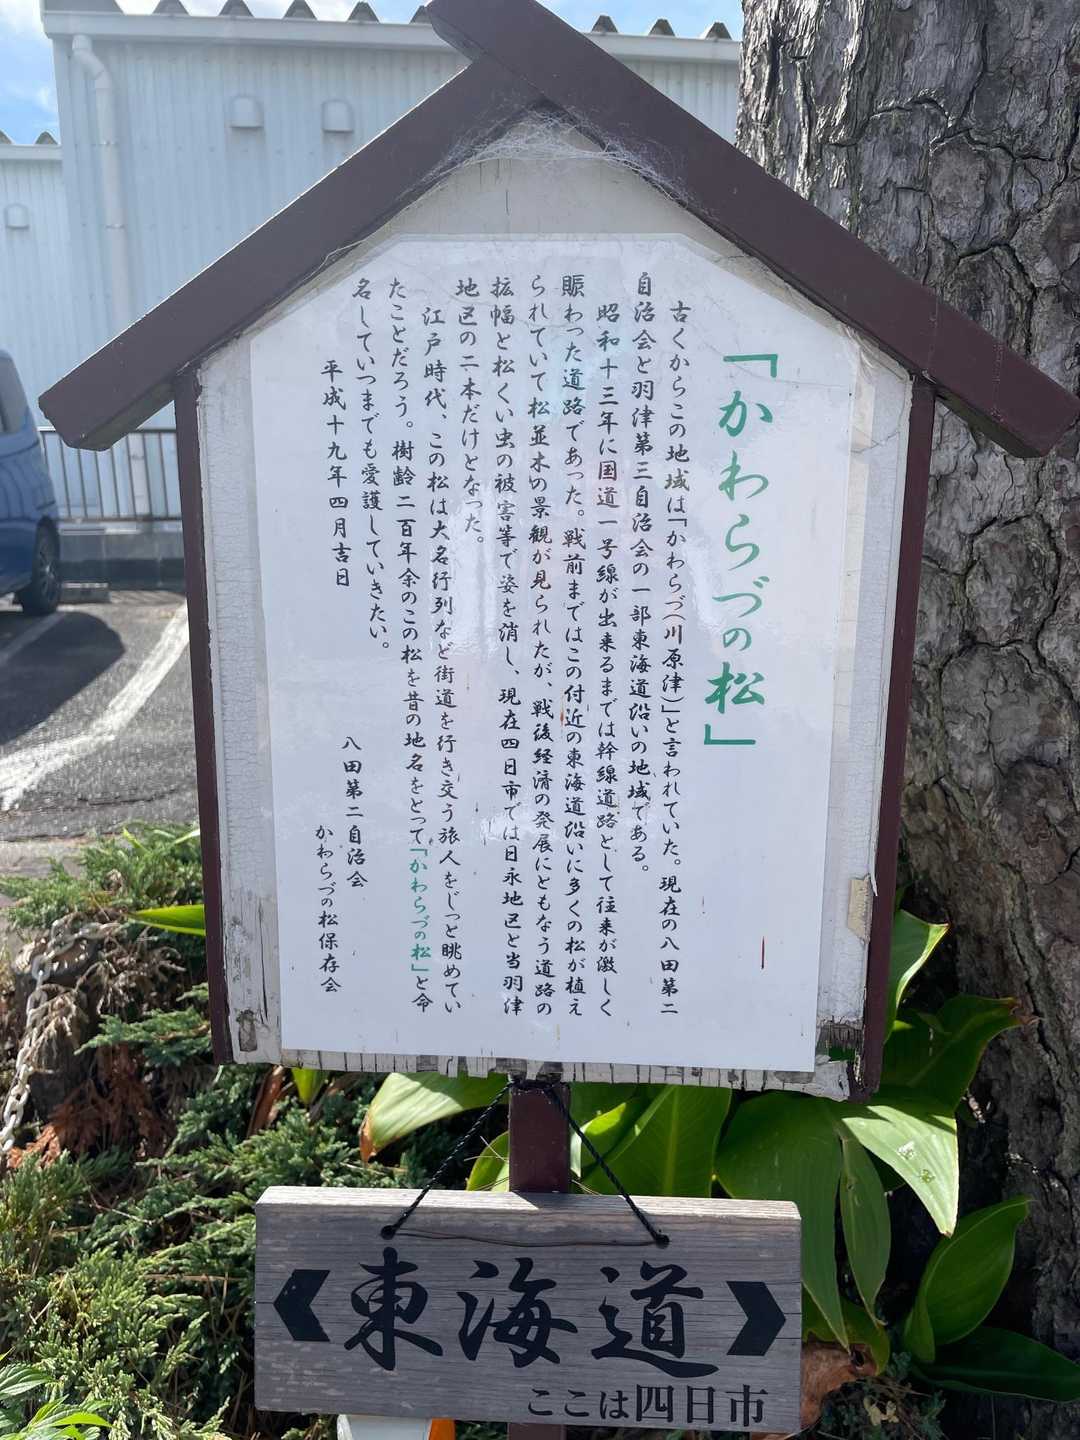 「かわらづの松」
古くからこの地域は「かわらづ(川原津)」と言われていた。現在の八田第二
自治会と羽津第三自治会の一部東海道沿いの地域である。
昭和十三年に国道一号線が出来るまでは幹線道路として往来が激しく
賑わった道路であった。戦前まではこの付近の東海道沿いに多くの松が植え
られていて松並木の景観が見られたが、戦後経済の発展にともなう道路の
拡幅と松くい虫の被害等で姿を消し、現在四日市では日永地区と当羽津
地区の二本だけとなった。
江戸時代、この松は大名行列など街道を行き交う旅人をじっと眺めてい
たことだろう。樹齢二百年余のこの松を昔の地名をとって「かわらづの松」と命
名していつまでも愛護していきたい。
平成十九年四月吉日
八田第二自治会
かわらづの松保存会
東海道
ここは四日市